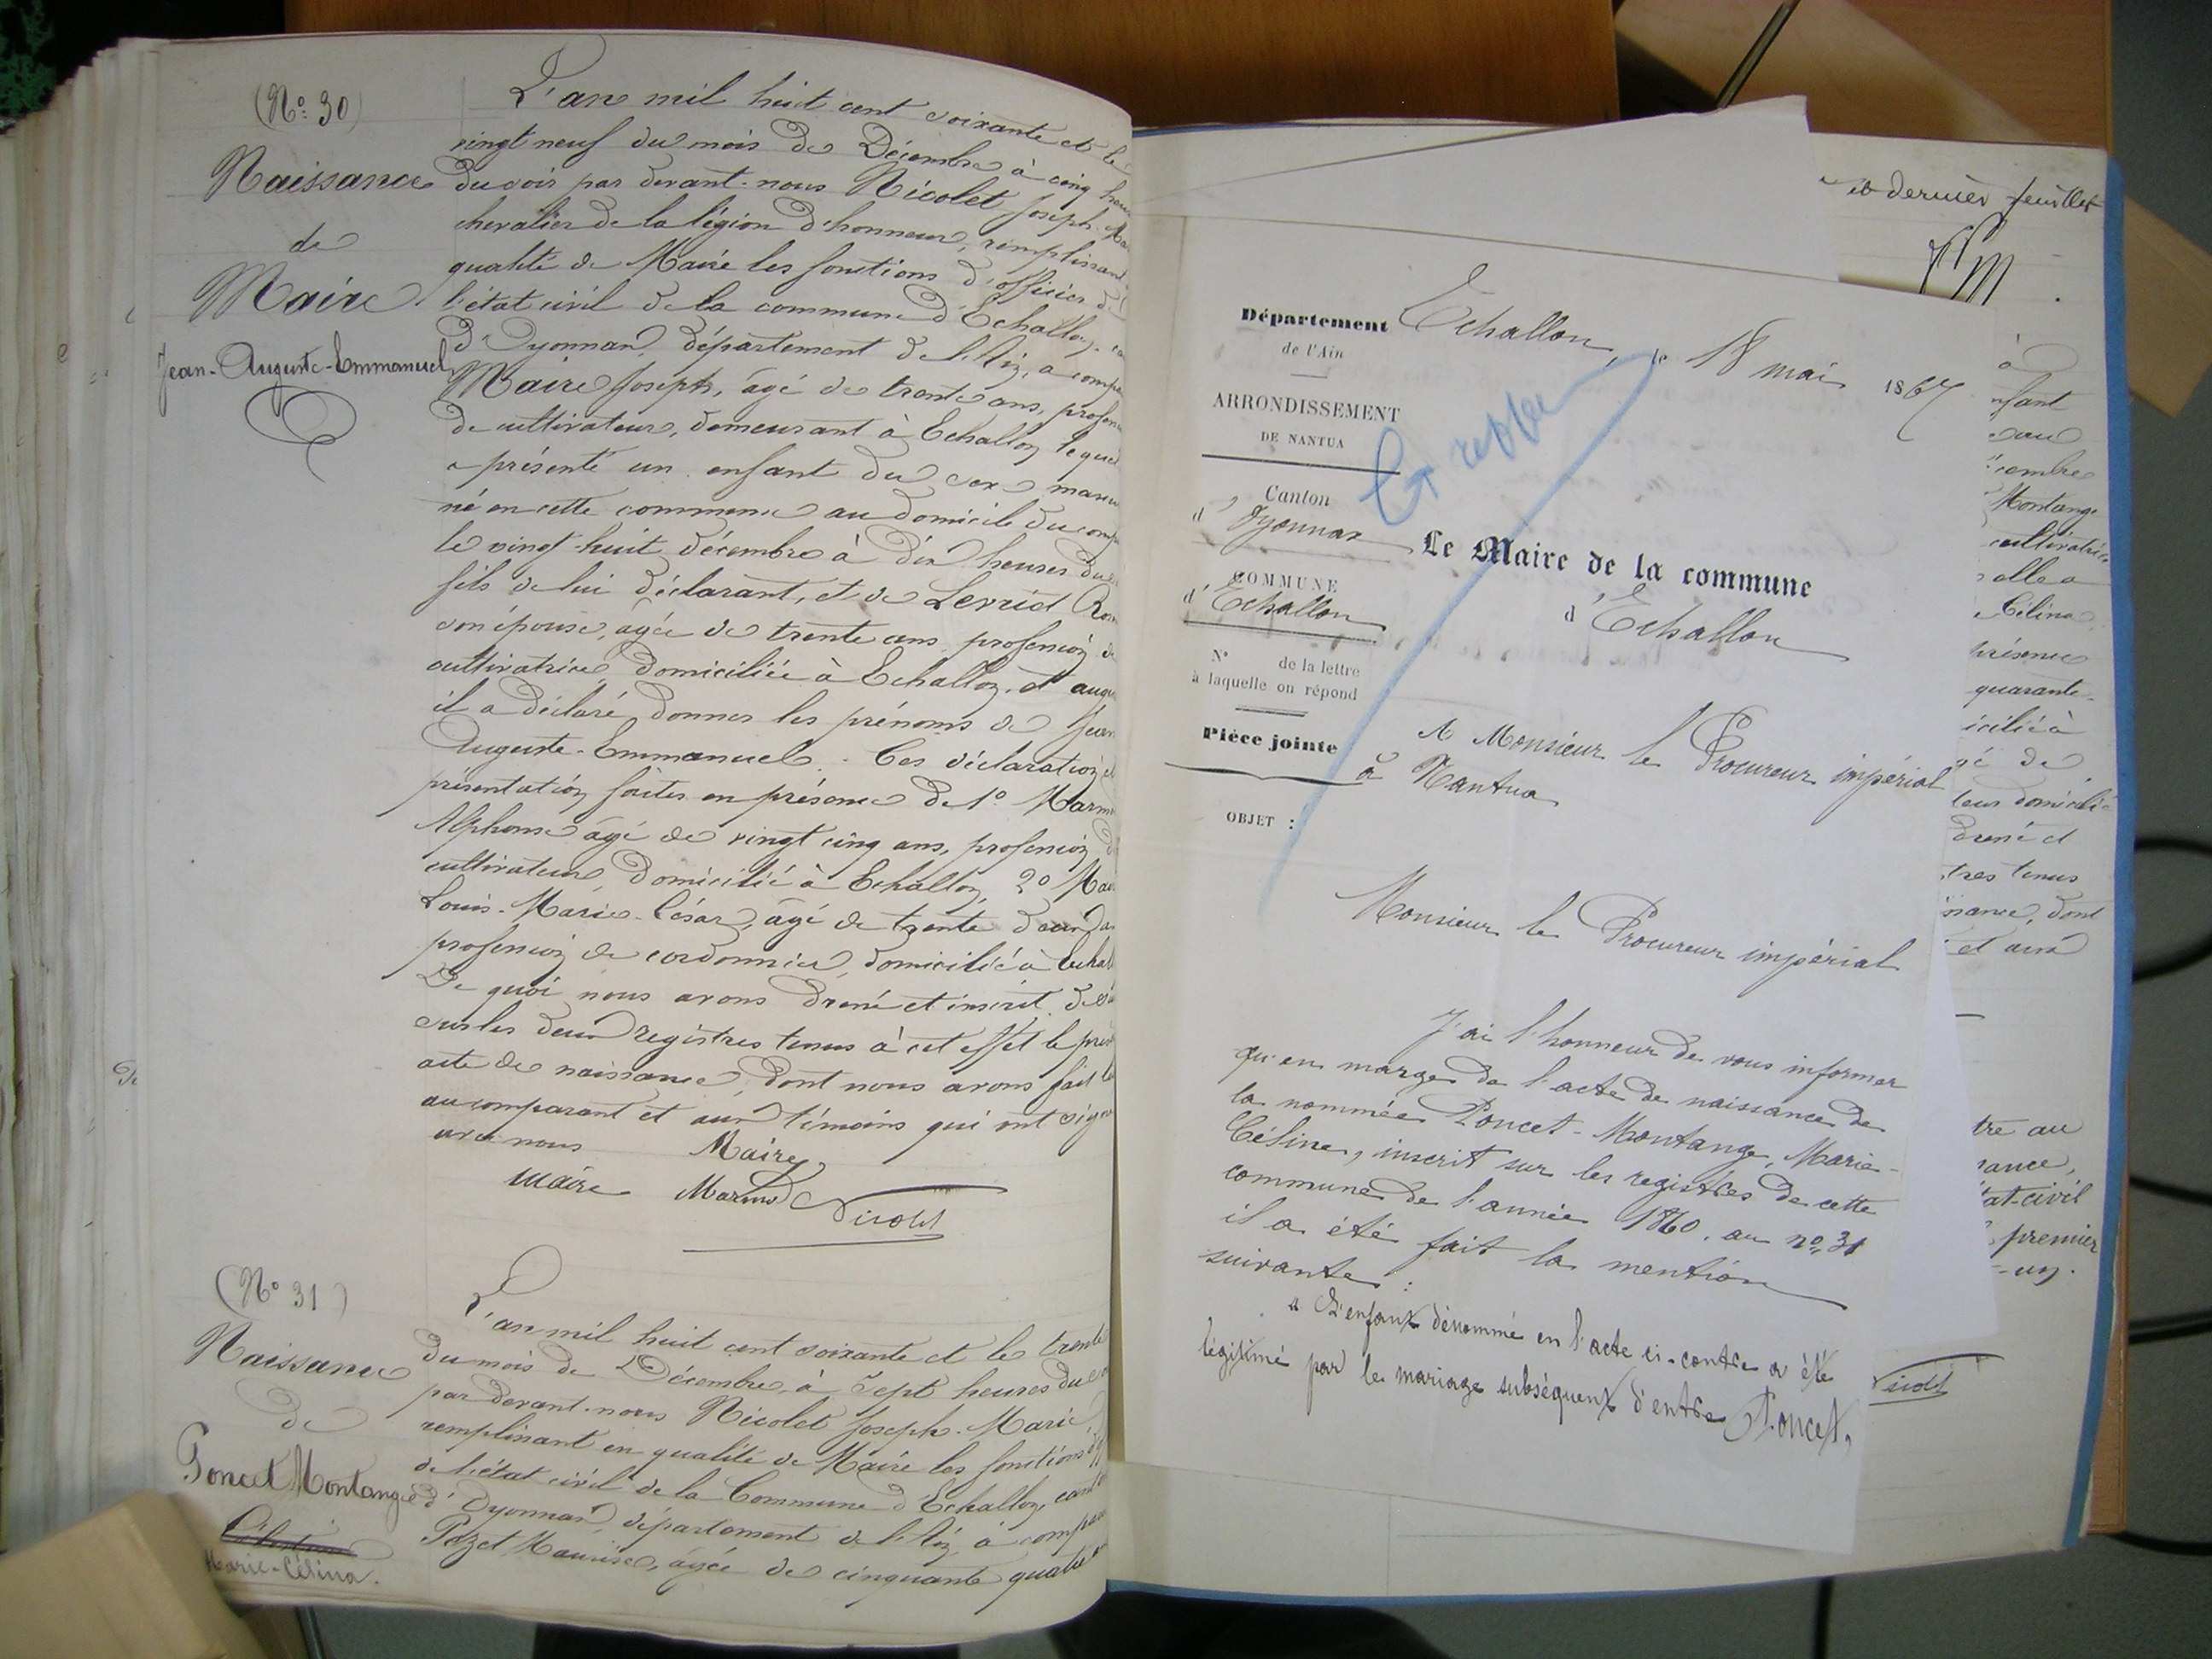 (No. 30)
Naissance
de
Maire
Jean-Auguste-Emmanuel
L'an mil huit cent soixante et le
vingt neuf du mois de Décembre à cinq heu
du soir par devant-nous Nicolet Joseph. Ma
chevalier de la légion d'honneur, remplissant
qualité de Maire les fonctions d'officier de
l'état civil de la commune d'Echallon. ca
d'Oyonnax, département de l'Ain, a compa
Maire Joseph, âgé de trente ans, profession
de cultivateur, demeurant à Echallon lequel
a présenté un enfant du sexe mascu
né en cette commune au domicile du comp
le vingt-huit décembre à dix heures du
fils de lui déclarant, et de Levrid Ros
son épouse, agée de trente ans, profession de
cultivatrice domiciliée à Echallon, et auqu
il a déclaré donner les prénoms de Jean
Auguste-Emmanuel. Ces déclaration et
présentation faites en présence de 1º Marm
Alphonse âgé de vingt cinq ans, profession d
cultivateur, domicilié à Echallon, 2º Mai
Louis-Marie-César, âgé de trente deux a
profession de cordonnier, domicilié à Echal
De quoi nous avons dressé et inscrit de s
sur les deux registres tenus à cet effet le prés
acte de naissance, dont nous avons fait le
au comparant et aux témoins qui ont sign
avec nous Maire
Maire Marmd Nicolet
(No 31)
Naissance
de
Poncet Montange
Marie-Célina.
L'an mil huit cent soixante et le trente
du mois de Décembre, à sept heures du
par devant-nous Nicolet Joseph-Marie,
remplissant en qualité de Maire les fonctions d'off
de l'état civil de la Commune d'Echallon, cant
d'Oyonnax, département de l'Ain à compa
Pozet Maurise, âgée de cinquante quatre
et dernier feuillet
Département
de l'Ain
ARRONDISSEMENT
DE NANTUA
Canton
d'Oyonnax
COMMUNE
d'Echallon
N° de la lettre
à laquelle on répond
Pièce jointe
OBJET :
Echallon, le 18 mai 1867
Le Maire de la commune
d'Echallon
A Monsieur le Procureur impérial
à Nantua
Monsieur le Procureur impérial
J'ai l'honneur de vous informer
qu'en marge de l'acte de naissance de
la nommée Poncet-Montange, Marie-
Céline, inscrit sur les registres de cette
commune de l'année 1860, au no. 31
il a été fait la mention
suivante :
" L'enfant dénommé en l'acte ci-contre a été
légitimé par le mariage subséquent d'entre Poncet,
à
nfant
eau
cembre
Montange
cultivatrice
elle a
Célina
présence
quarante-
icilié à
gé de
teur domicilié
dressé et
tres tenus
issance, dont
et aux
tre au
sance,
tat-civil
premier
-un.
Nicolet